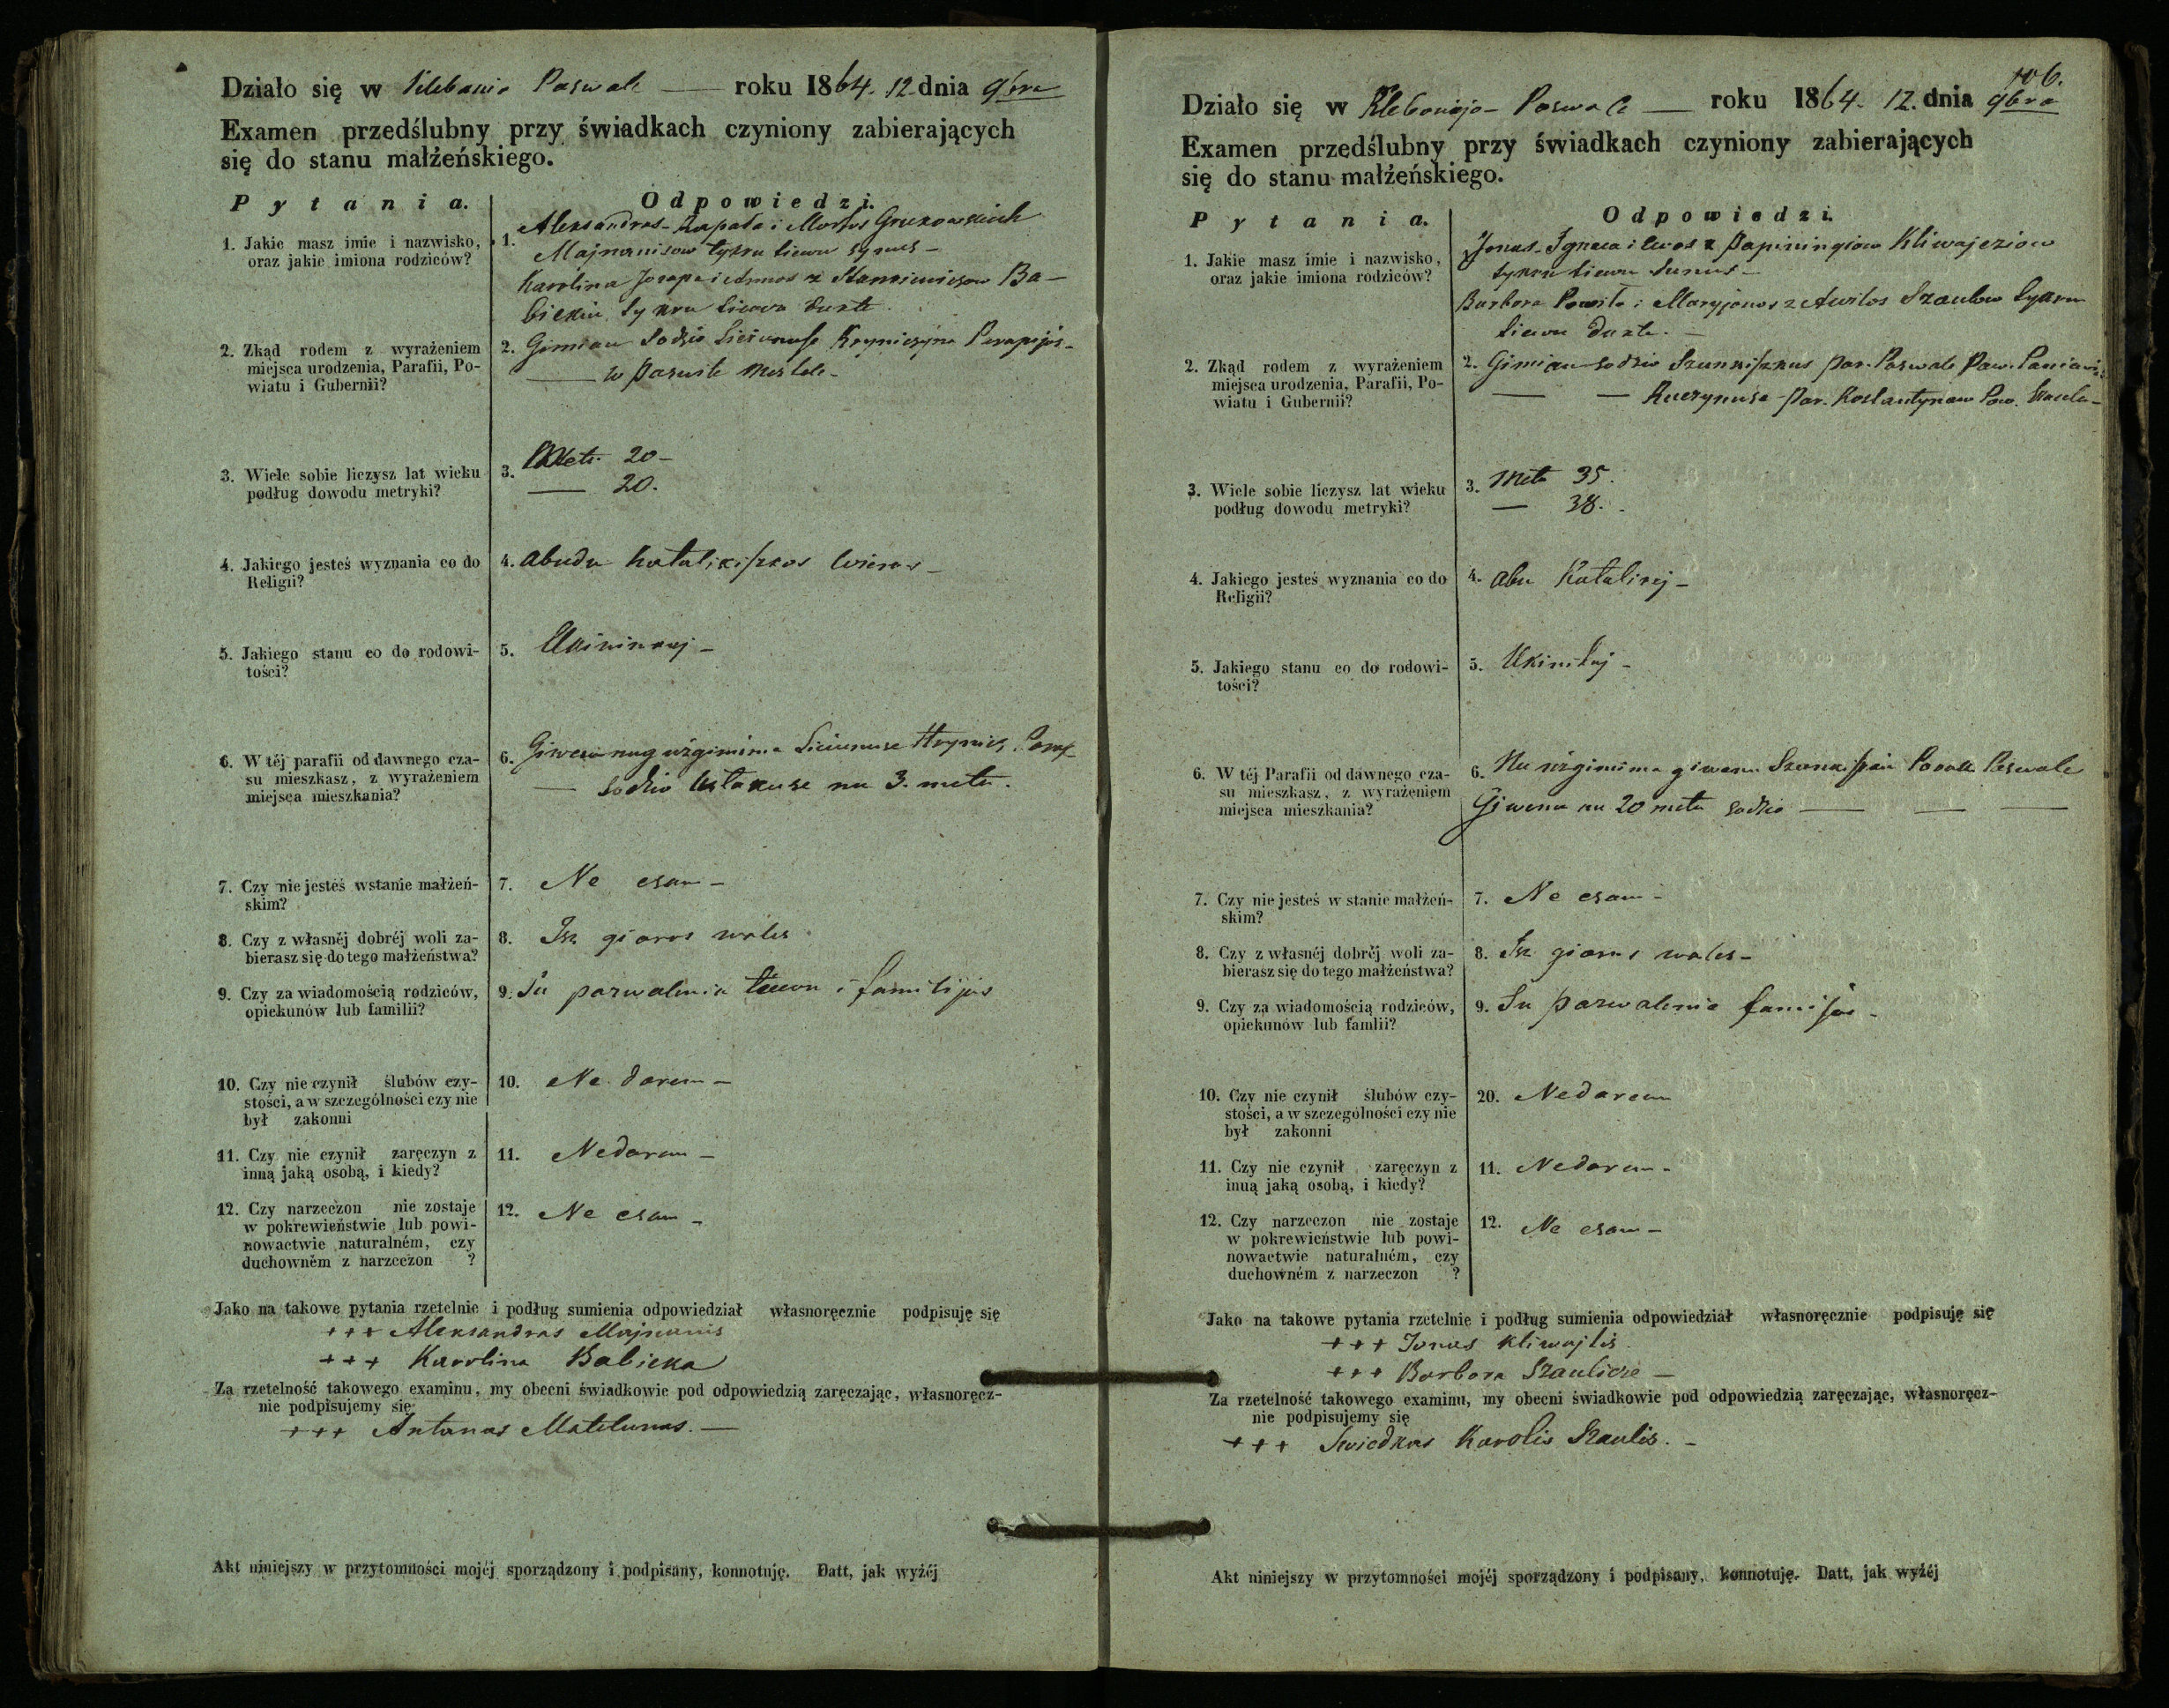 Działo się w Klebonio Paswale — roku 1864. 12 dnia 9bra
Examen przedślubny przy świadkach czyniony zabierających
się do stanu małżeńskiego.
Pytania.
Odpowiedzi.
1. Jakie masz imie i nazwisko,
oraz jakie imiona rodziców?
1. Aleksandras Zapata i Mortos
Majnanisow tykru tiewu synus —
Karolina Jozapa i Annos z Stankiewiczow Ba-
bickiu tykru tiewu dukte.
2. Zkąd rodem z wyrażeniem
miejsca urodzenia, Parafii, Po-
wiatu i Gubernii?
2. Gimiau sodzio Parapijos —
— w Paswite
3. Wiele sobie liczysz lat wieku
podług dowodu metryki?
3. Metu 20 —
— 20.
4. Jakiego jesteś wyznania co do
Religii?
4. abudu katalikiszkos wieros —
5. Jakiego stanu co do rodowi-
tości?
5. Ukininkaj —
6. W téj parafii od dawnego cza-
su mieszkasz, z wyrażeniem
miejsca mieszkania?
6. Giwenu nug użgimima
— sodzio nu 3. metu.
7. Czy nie jesteś wstanie małżeń-
skim?
7. Ne esam —
8. Czy z własnéj dobréj woli za-
bierasz się do tego małżeństwa?
8. Isz gioros wales
9. Czy za wiadomością rodziców,
opiekunów lub familii?
9. Su pazwalenia tiewu i familijos
10. Czy nie czynił ślubów czy-
stości, a w szczególności czy nie
był zakonni
10. Ne darem —
11. Czy nie czynił zaręczyn z
inną jaką osobą, i kiedy?
11. Nedarem —
12. Czy narzeczon nie zostaje
w pokrewieństwie lub powi-
nowactwie naturalném, czy
duchowném z narzeczon ?
12. Ne esam —
Jako na takowe pytania rzetelnie i podług sumienia odpowiedział własnoręcznie podpisuję się
+++ Aleksandras Majnanis
+++ Karolina Babicka
Za rzetelność takowego examinu, my obecni świadkowie pod odpowiedzią zaręczając, własnoręcz-
nie podpisujemy się
+++ Antanas Matelunas. —
Akt niniejszy w przytomności mojéj sporządzony i podpisany, konnotuję. Datt, jak wyźéj
106.
Działo się w Klebonijo Paswale — roku 1864. 12. dnia 9bra
Examen przedślubny przy świadkach czyniony zabierających
się do stanu małżeńskiego.
Pytania.
Odpowiedzi.
1. Jakie masz imie i nazwisko,
oraz jakie imiona rodziców?
Jonas Ignaca i Ewos z Papiningiow Kliwajcziow
tykru tiewu sunus —
Barbora Powila i Maryjonos z Awilos Szaulow tykru
tiewu dukte. —
2. Zkąd rodem z wyrażeniem
miejsca urodzenia, Parafii, Po-
wiatu i Gubernii?
2. Gimiau sodzio par. Paswale Paw.
— — par. Kostantynaw Pow.
3. Wiele sobie liczysz lat wieku
podług dowodu metryki?
3. Metu 35.
— 38.
4. Jakiego jesteś wyznania co do
Religii?
4. abu Katalikej —
5. Jakiego stanu co do rodowi-
tości?
5. Ukinikaj —
6. W téj Parafii od dawnego cza-
su mieszkasz, z wyrażeniem
miejsca mieszkania?
6. Nu użgimima giwenu Paswale
Giwenu nu 20 metu sodzio — — —
7. Czy nie jesteś w stanie małżeń-
skim?
7. Ne esam —
8. Czy z własnéj dobréj woli za-
bierasz się do tego małżeństwa?
8. Isz gioros wales —
9. Czy za wiadomością rodziców,
opiekunów lub famlii?
9. Su pazwalenia
10. Czy nie czynił ślubów czy-
stości, a w szczególności czy nie
był zakonni
20. Nedarem
11. Czy nie czynił zaręczyn z
inuą jaką osobą, i kiedy?
11. Nedarem —
12. Czy narzeczon nie zostaje
w pokrewieństwie lub powi-
nowactwie naturalném, czy
duchowném z narzeczon ?
12. Ne esam —
Jako na takowe pytania rzetelnie i podług sumienia odpowiedział własnoręcznie podpisuję się
+++ Jonas Kliwajtis
+++ Barbora Szaulicze —
Za rzetelność takowego examinu, my obecni świadkowie pod odpowiedzią zaręczając, własnoręcz-
nie podpisujemy się
+++ Swiedkas Karolis Szaulis. —
Akt niniejszy w przytomności mojéj sporządzony i podpisany, konnotuję. Datt, jak wyźéj